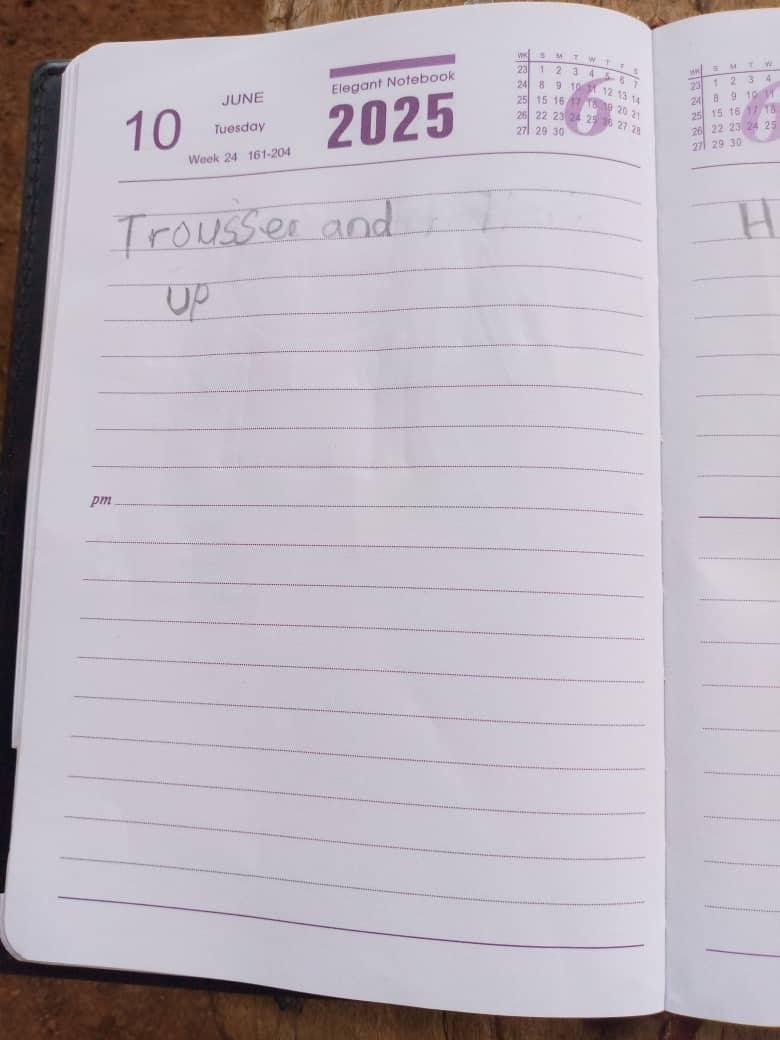 10
JUNE
Tuesday
Week 24 161-204
Elegant Notebook
2025
WK S M T W T F S
23 1 2 3 4 5 6 7
24 8 9 10 11 12 13 14
25 15 16 17 18 19 20 21
26 22 23 24 25 26 27 28
27 29 30
6
Trousser and
up
pm
WK S M T W
23 1 2 3 4
24 8 9 10 11
25 15 16 17 18
26 22 23 24 25
27 29 30
H